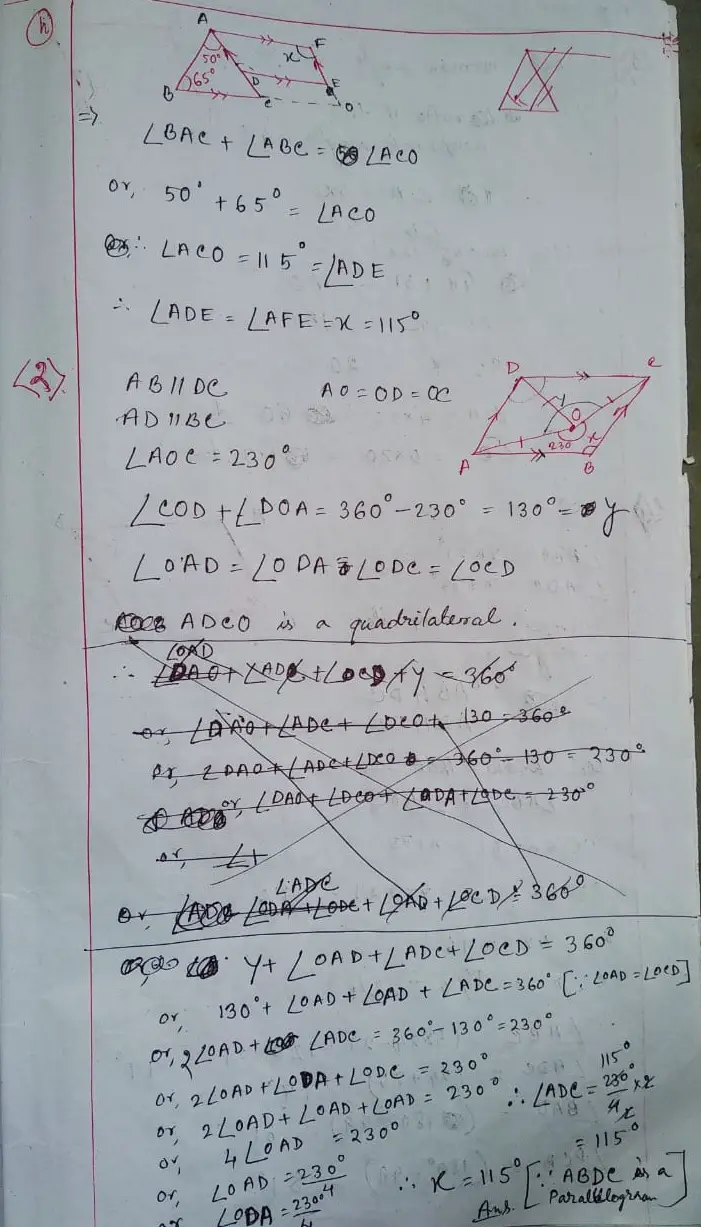 (h)
A
F
50°
x
B
65°
D
E
C
O
=>
∠BAC + ∠ABC = ∠ACO
or, 50° + 65° = ∠ACO
∴ ∠ACO = 115° = ∠ADE
∴ ∠ADE = ∠AFE = x = 115°
(2)
AB || DC AO = OD = OC
AD || BC
∠AOC = 230°
D
C
y
O
230
x
A
B
∠COD + ∠DOA = 360° - 230° = 130° = y
∠OAD = ∠ODA = ∠ODC = ∠OCD
ADCO is a quadrilateral.
∠OAD
∴ ∠DAO + ∠ADC + ∠OCD + y = 360°
or, ∠DAO + ∠ADC + ∠DCO + 130 = 360°
or, ∠DAO + ∠ADC + ∠DCO = 360° - 130 = 230°
or, ∠DAO + ∠DCO + ∠ODA + ∠ODC = 230°
or, ∠
∠ADC
or, ∠ODA + ∠ODC + ∠OAD + ∠OCD = 360°
y + ∠OAD + ∠ADC + ∠OCD = 360°
or, 130° + ∠OAD + ∠OAD + ∠ADC = 360° [∵ ∠OAD = ∠OCD]
or, 2∠OAD + ∠ADC = 360° - 130° = 230°
or, 2∠OAD + ∠ODA + ∠ODC = 230°
or, 2∠OAD + ∠OAD + ∠OAD = 230° ∴ ∠ADC = 230°/4 × 2
115°
2
or, 4∠OAD = 230°
= 115°
or, ∠OAD = 230°/4
∴ x = 115° [∵ ABDC is a Parallelogram]
Ans.
or ∠ODA = 230°/4